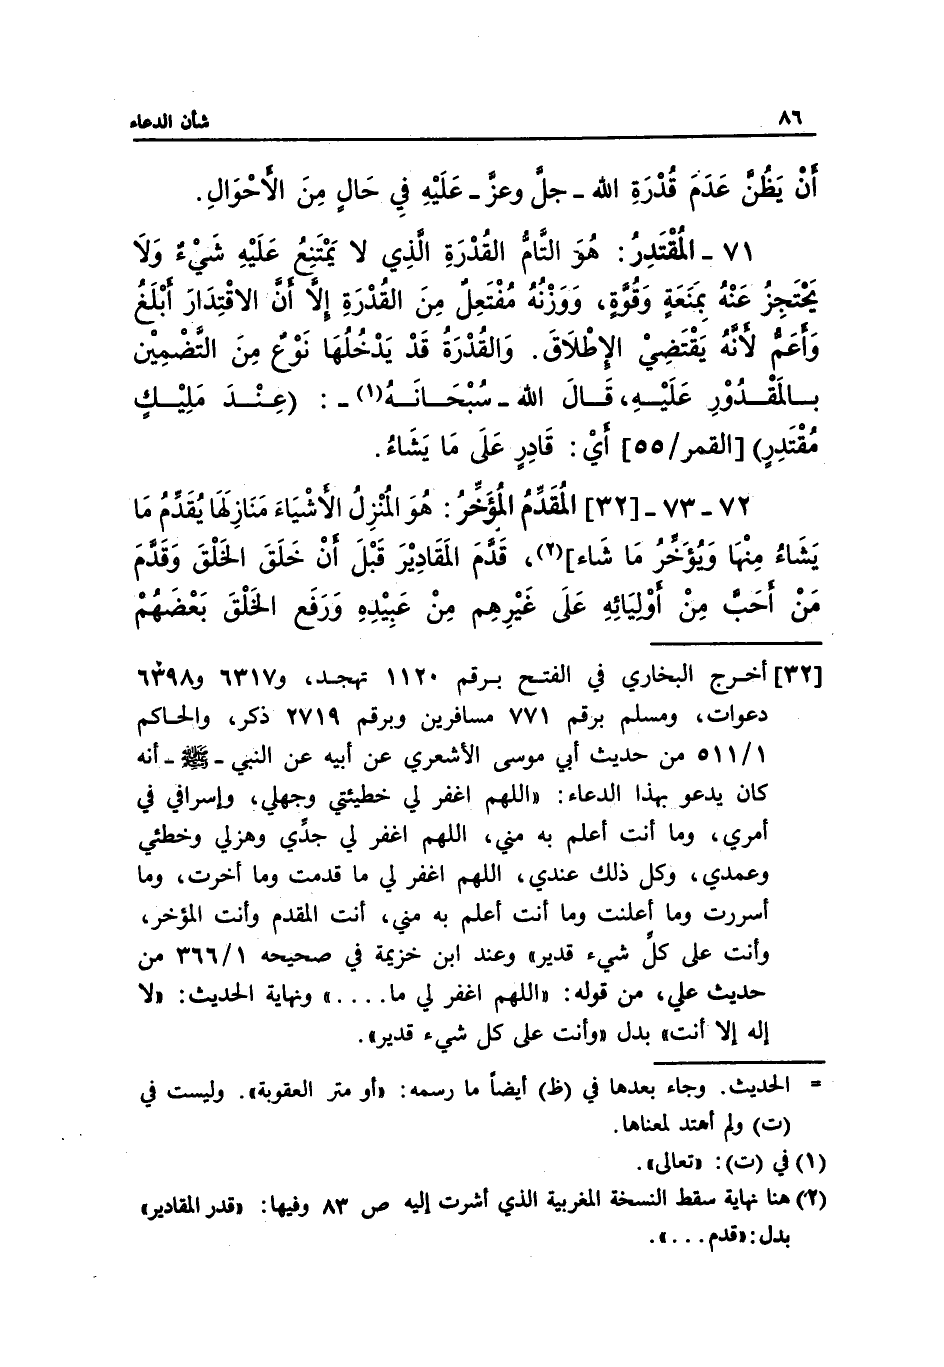 ٨٦ شأن الدعاء
أَنْ يَظُنَّ عَدَمَ قُدْرَةِ الله ـ جلَّ وعزَّ ـ عَلَيْهِ فِي حَالٍ مِنَ الأَحْوَالِ.
٧١ ـ المُقْتَدِرُ: هُوَ التَّامُّ القُدْرَةِ الَّذِي لا يَمْتَنِعُ عَلَيْهِ شَيْءٌ وَلَا
يَحْتَجِزُ عَنْهُ بِمَنَعَةٍ وَقُوَّةٍ، وَوَزْنُهُ مُفْتَعِلٌ مِنَ القُدْرَةِ إِلَّا أَنَّ الاقْتِدَارَ أَبْلَغُ
وَأَعَمُّ لأَنَّهُ يَقْتَضِيْ الإِطْلَاقَ. وَالقُدْرَةُ قَدْ يَدْخُلُهَا نَوْعٌ مِنَ التَّضْمِيْنِ
بِالمَقْدُوْرِ عَلَيْهِ، قَالَ الله ـ سُبْحَانَهُ(١) ـ : (عِنْدَ مَلِيْكٍ
مُقْتَدِرٍ) [القمر/٥٥] أَيْ: قَادِرٍ عَلَى مَا يَشَاءُ.
٧٢ ـ ٧٣ ـ [٣٢] المُقَدِّمُ المُؤَخِّرُ: هُوَ المُنْزِلُ الأَشْيَاءَ مَنَازِلَهَا يُقَدِّمُ مَا
يَشَاءُ مِنْهَا وَيُؤَخِّرُ مَا شَاء](٢)، قَدَّمَ المَقَادِيْرَ قَبْلَ أَنْ خَلَقَ الخَلْقَ وَقَدَّمَ
مَنْ أَحَبَّ مِنْ أَوْلِيَائِهِ عَلَى غَيْرِهِم مِنْ عَبِيْدِهِ وَرَفَع الخَلْقَ بَعْضَهُمْ
[٣٢] أخرج البخاري في الفتح برقم ١١٢٠ تهجد، و٦٣١٧ و٦٣٩٨
دعوات، ومسلم برقم ٧٧١ مسافرين وبرقم ٢٧١٩ ذكر، والحاكم
٥١١/١ من حديث أبي موسى الأشعري عن أبيه عن النبي ـ ﷺ ـ أنه
كان يدعو بهذا الدعاء: «اللهم اغفر لي خطيئتي وجهلي، وإسرافي في
أمري، وما أنت أعلم به مني، اللهم اغفر لي جدِّي وهزلي وخطئي
وعمدي، وكل ذلك عندي، اللهم اغفر لي ما قدمت وما أخرت، وما
أسررت وما أعلنت وما أنت أعلم به مني، أنت المقدم وأنت المؤخر،
وأنت على كلِّ شيء قدير» وعند ابن خزيمة في صحيحه ٣٦٦/١ من
حديث علي، من قوله: «اللهم اغفر لي ما....» ونهاية الحديث: «لا
إله إلا أنت» بدل «وأنت على كل شيء قدير».
= الحديث. وجاء بعدها في (ظ) أيضاً ما رسمه: «أو متر العقوبة». وليست في
(ت) ولم أهتد لمعناها.
(١) في (ت): «تعالى».
(٢) هنا نهاية سقط النسخة المغربية الذي أشرت إليه ص ٨٣ وفيها: «قدر المقادير»
بدل: «قدم...».